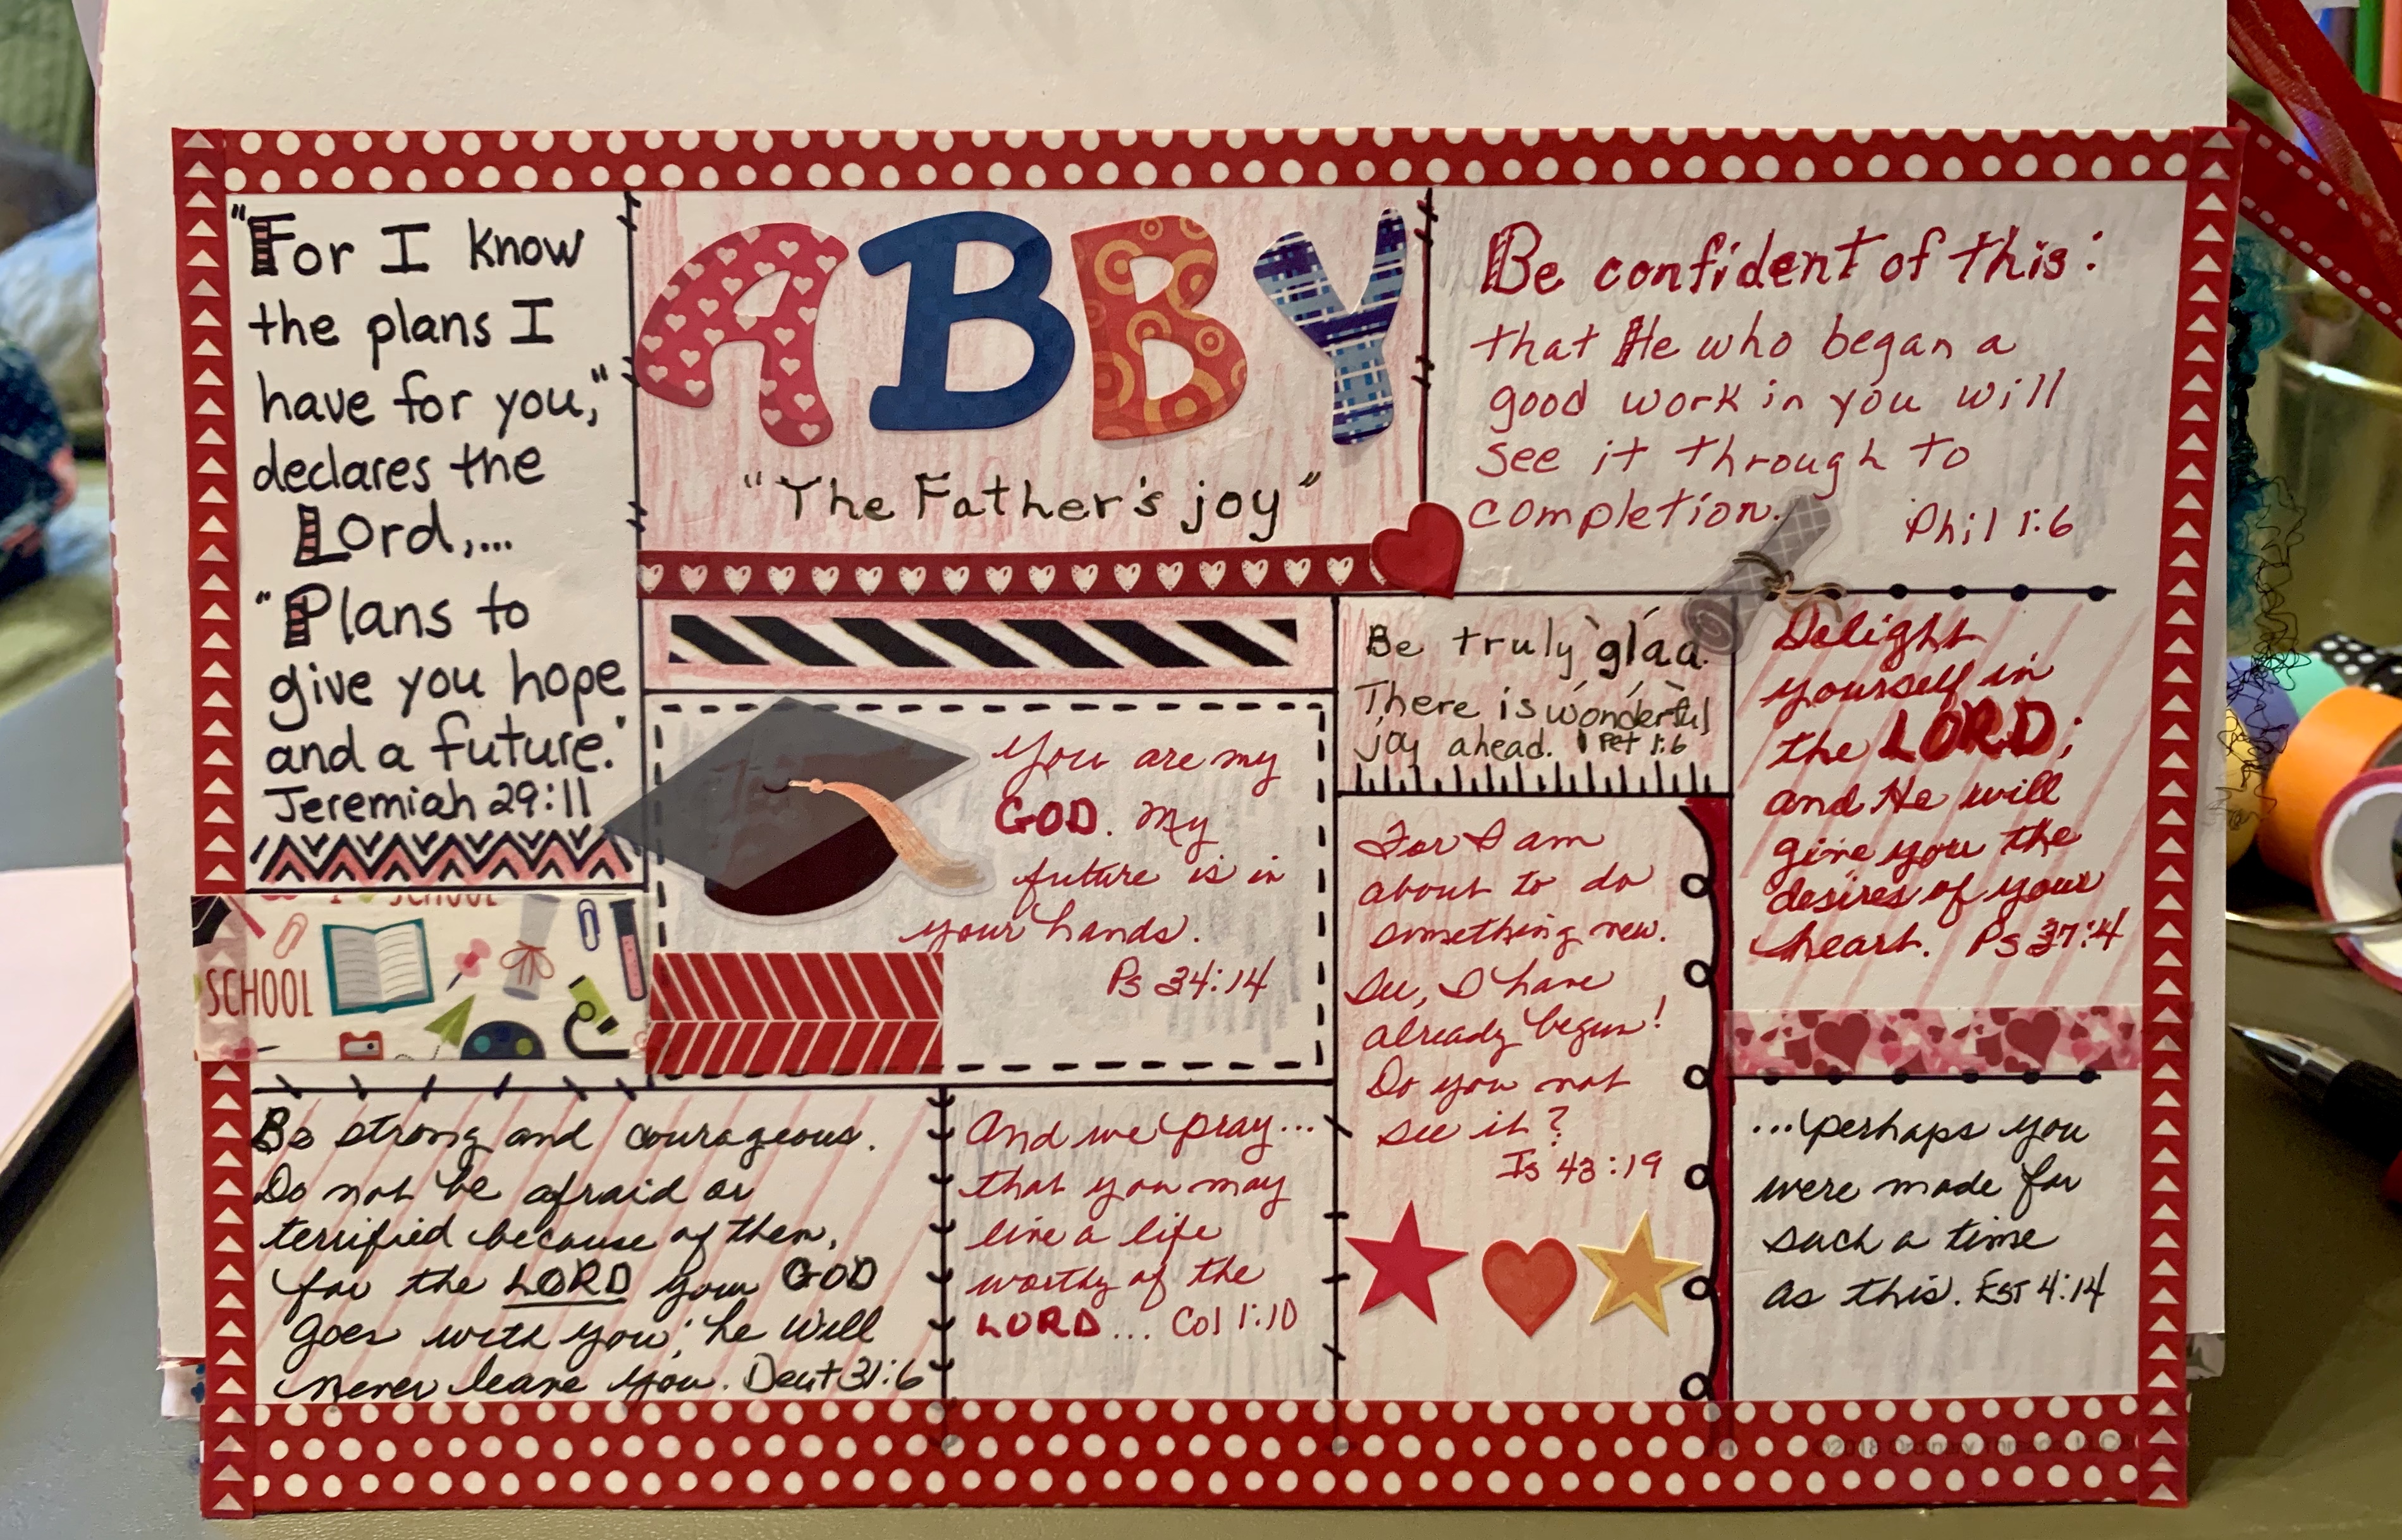 "For I know
the plans I
have for you,"
declares the
Lord,...
"Plans to
give you hope
and a future."
Jeremiah 29:11
ABBY
"The Father's joy"
Be confident of this:
that He who began a
good work in you will
see it through to
completion.
Phil 1:6
You are my
GOD. My
future is in
your hands.
Ps 34:14
Be truly glad.
There is wonderful
joy ahead. 1 Pet 1:6
Delight
yourself in
the LORD;
and He will
give you the
desires of your
heart. Ps 37:4
For I am
about to do
something new.
See, I have
already begun!
Do you not
see it?
Is 43:19
I SCHOOL
SCHOOL
Be strong and courageous.
Do not be afraid or
terrified because of them,
for the LORD your GOD
goes with you; he will
never leave you. Deut 31:6
And we pray...
that you may
live a life
worthy of the
LORD... Col 1:10
...perhaps you
were made for
such a time
as this. EST 4:14
©2018 Ordinary Threads, LLC